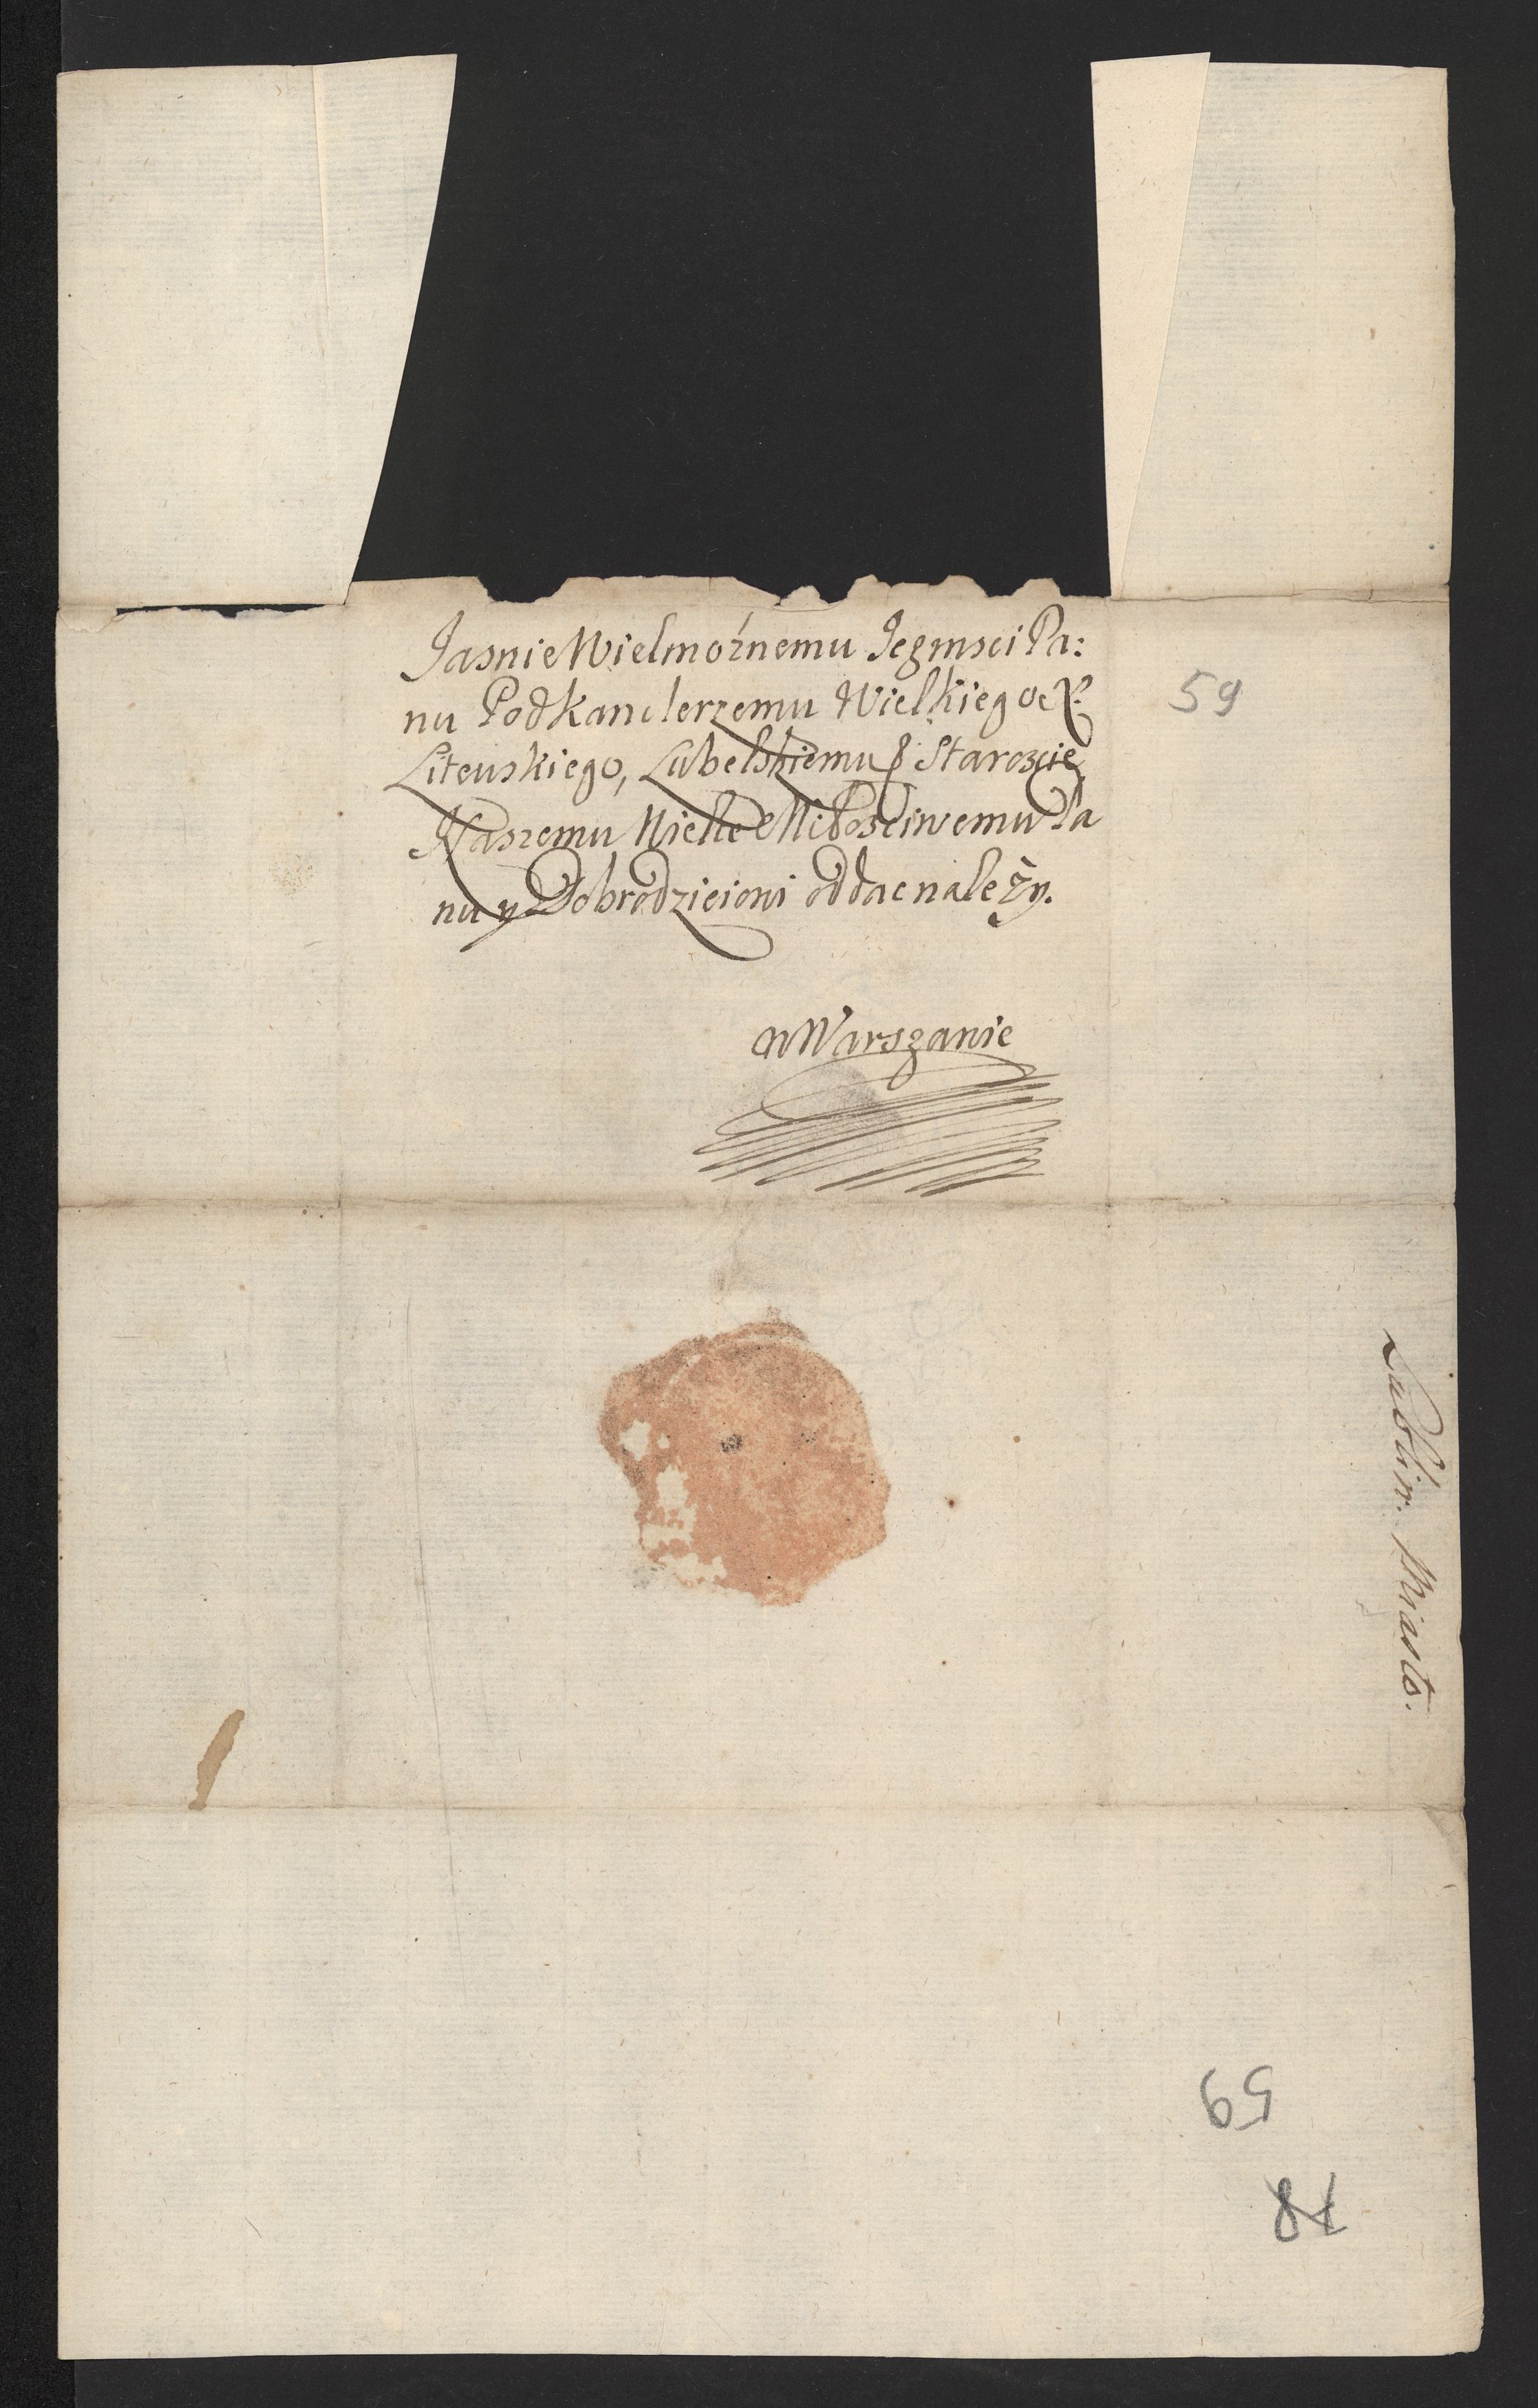 Jasnie Wielmożnemu Jegmsci Pa:
nu Podkanclerzemu Wielkiego X:
Litewskiego, Lubelskiemu Staroscie
Naszemu Wielce Miłosciwemu Pa
nu y Dobrodzieiowi oddac należy.
w Warszawie
59
Lublin. Miasto.
59